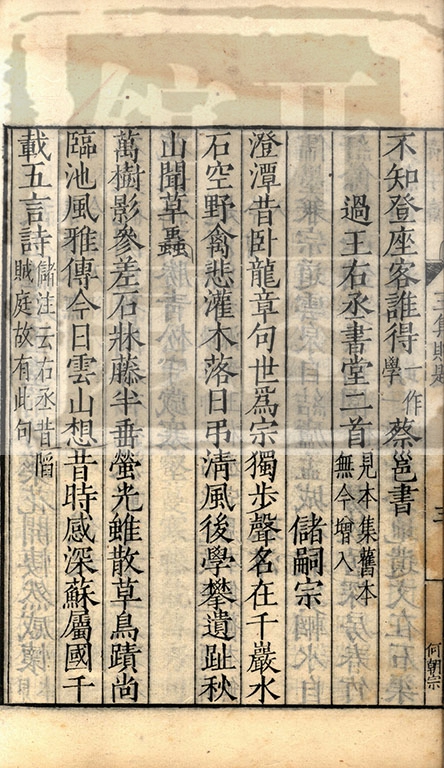 不知登座客誰得一作學蔡邕書
過王右丞書堂二首見本集舊本無今增入
儲嗣宗
澄潭昔卧龍章句世爲宗獨步聲名在千巖水
石空野禽悲灌木落日弔清風後學攀遺趾秋
山聞草蟲
萬樹影參差石牀藤半垂螢光雖散草鳥蹟尚
臨池風雅傳今日雲山想昔時感深蘇屬國千
載五言詩儲注云右丞昔陷賊庭故有此句
何朝宗